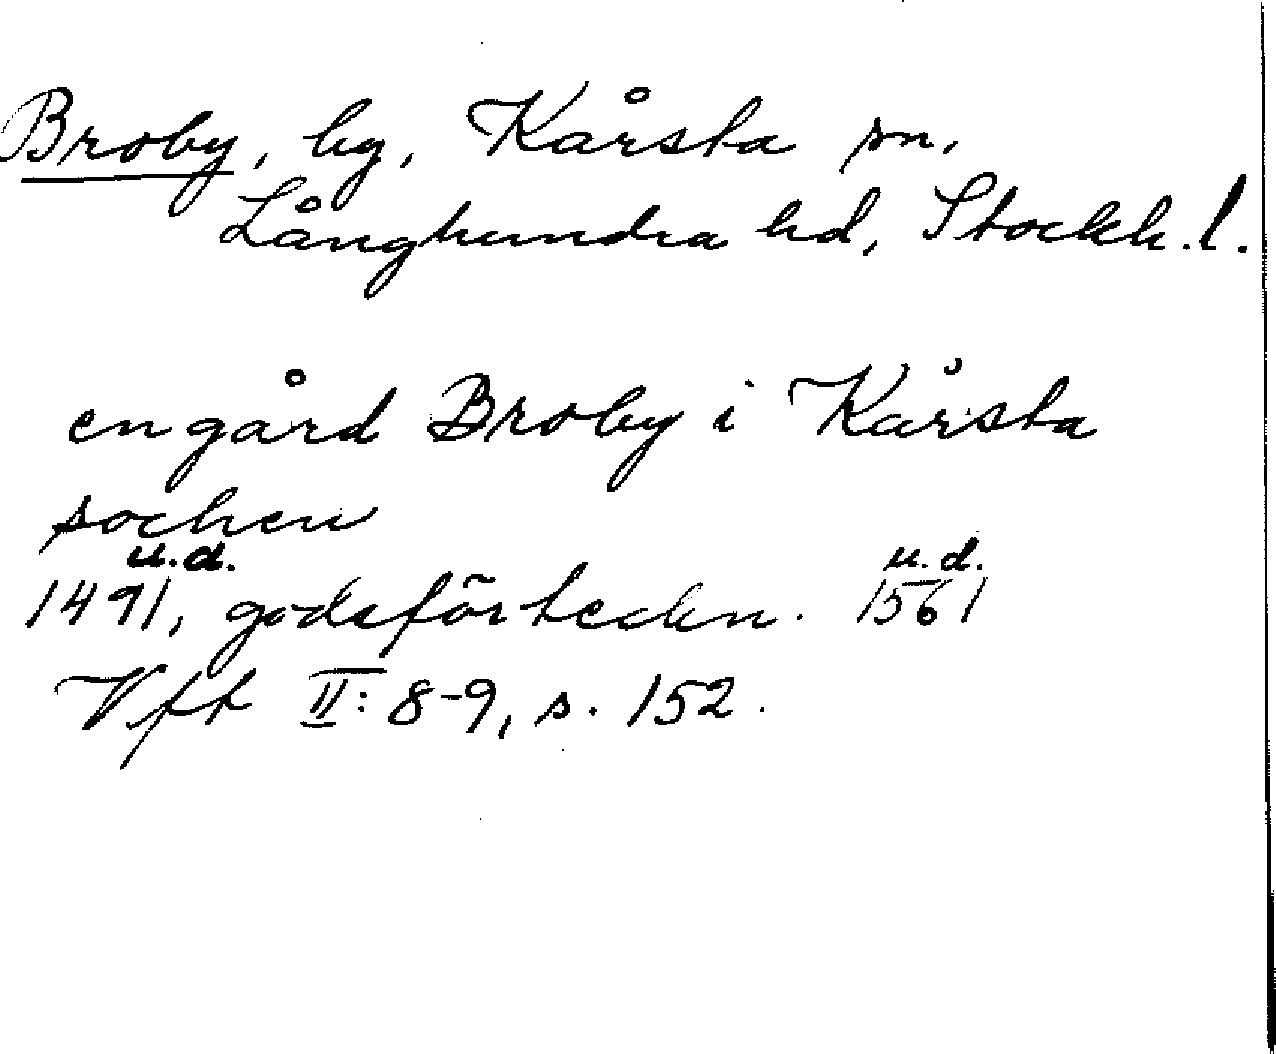 Broby, by, Kårsta sn,
Långhundra hd, Stockh. l.
en gård Broby i Kårsta
sochen
u.d. u.d.
1491, godsförteckn. 1561
Vft II: 8-9, s. 152.